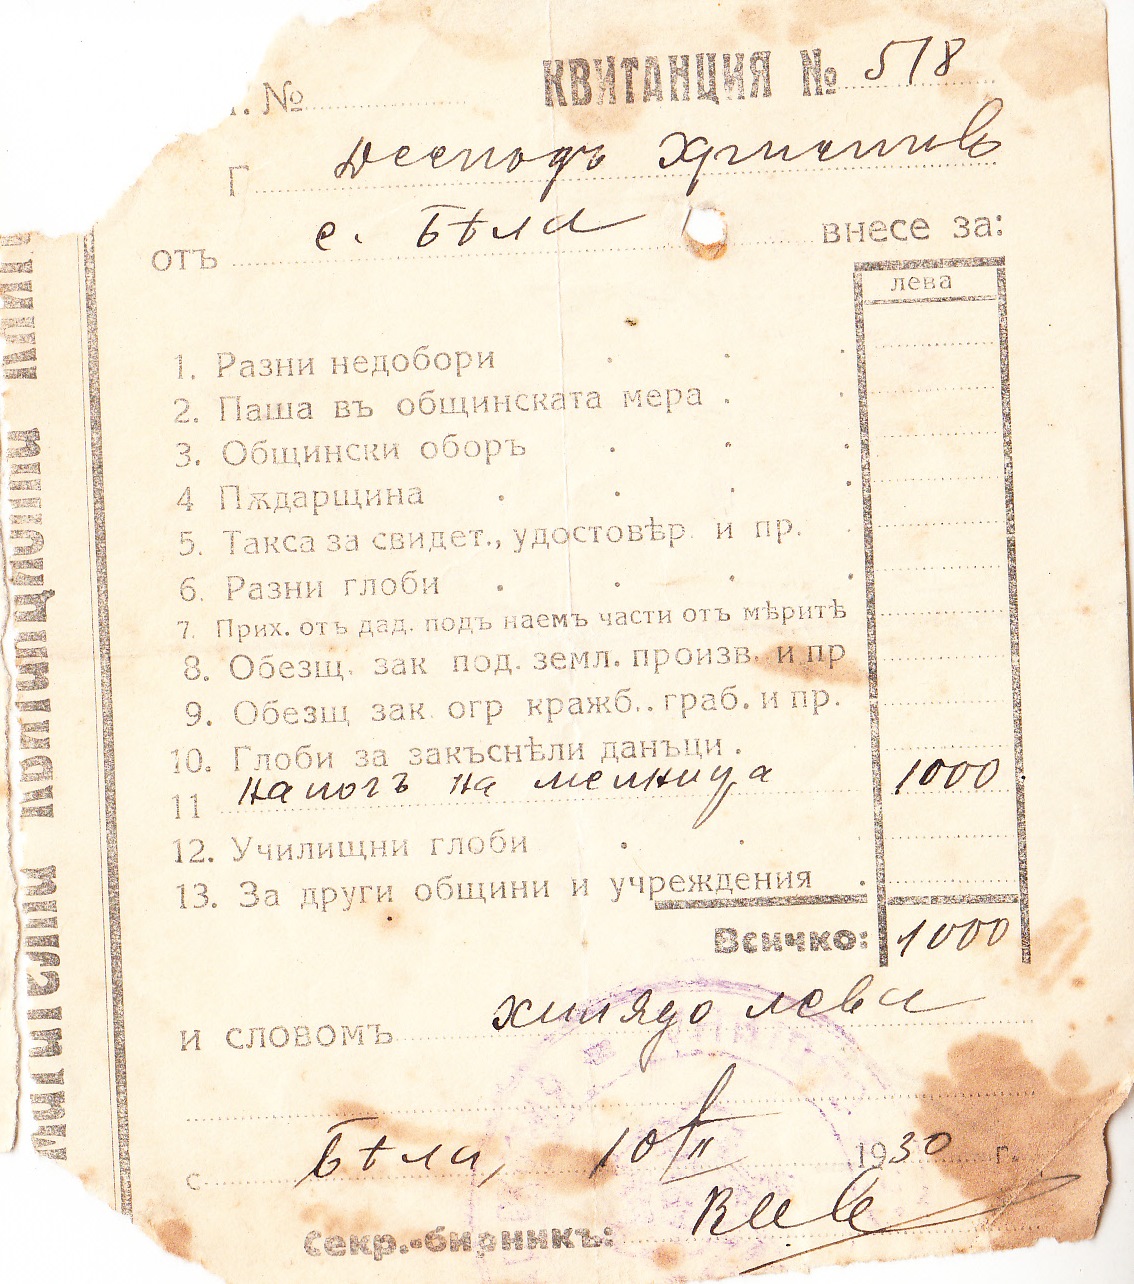 № КВИТАНЦИЯ № 518
Г Десподъ Христовъ
отъ с. Бѣла внесе за:
лева
1. Разни недобори
2. Паша въ общинската мера
3. Общински оборъ
4 Пѫдарщина
5. Такса за свидет., удостовѣр. и пр.
6. Разни глоби
7. Прих. отъ дад. подъ наемъ части отъ мѣритѣ
8. Обезщ. зак под. земл. произв. и пр
9. Обезщ зак. огр кражб.. граб. и пр.
10. Глоби за закъснѣли данъци.
11 Налогъ на мелница 1000
12. Училищни глоби
13. За други общини и учреждения
Всичко: 1000
и словомъ хилядо лева
с Бѣла, 10/ 1930 г.
Секр.-бирникъ: